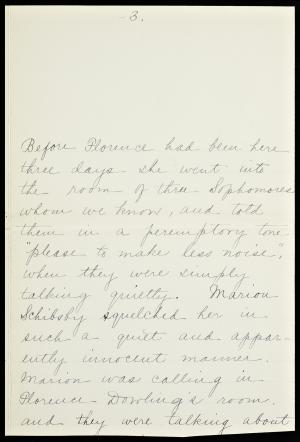 -3.
Before Florence had been here
three days she went into
the room of three Sophomores
whom we know, and told
them in a peremptory tone
"please to make less noise",
when they were simply
talking quietly. Marion
Schibsby squelched her in
such a quiet and appar-
ently innocent manner.
Marion was calling in
Florence Dowling's room,
and they were talking about